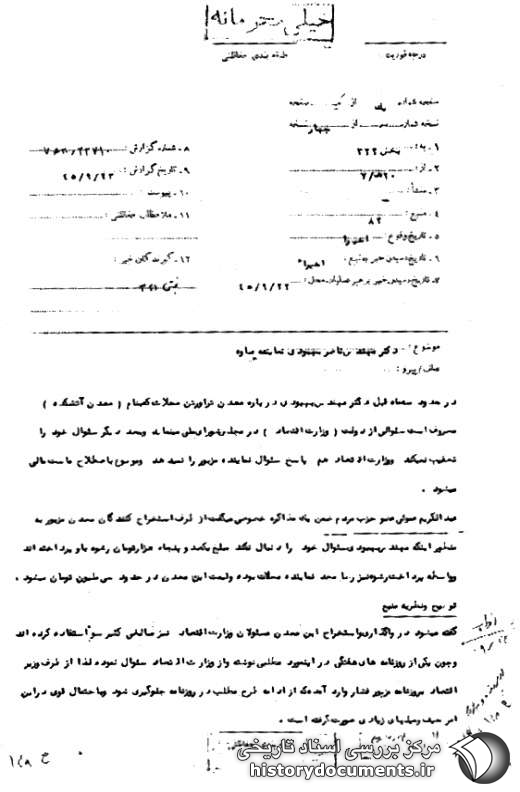 خیلی محرمانه
درجه فوریت
طبقه بندی حفاظتی
صفحه شماره یک از یک صفحه
نسخه شماره از چهار نسخه
۱ـ به: بخش ۳۲۲
۲ـ از: ۲۰ه/۷
۳ـ منشأ:
۴ـ منبع: ۸۲
۵ـ تاریخ وقوع: اخیرا
۶ـ تاریخ رسیدن خبر به منبع: اخیرا
۷ـ تاریخ رسیدن خبر برهبر عملیات محل: ۴۵/۹/۲۲
۸ـ شماره گزارش:
۹ـ تاریخ گزارش: ۴۵/۹/۲۳
۱۰ـ پیوست:
۱۱ـ ملاحظات حفاظتی:
۱۲ـ گیرندگان خبر:
موضوع: دکتر مهندس ناصر بهبودی نماینده ساوه
عطف/پیرو:
در حدود سه ماه قبل دکتر مهندس بهبودی درباره معدن تراورتن محلات که بنام ( معدن آتشکده )
معروف است سئوالی از دولت ( وزارت اقتصاد ) در مجلس شورای ملی مینماید وبعد دیگر سئوال خود را
تعقیب نمیکند ووزارت اقتصاد هم پاسخ سئوال نماینده مزبور را نمیدهد وموضوع باصطلاح ماست مالی
میشود .
عبدالکریم عضو حزب مردم ضمن یک مذاکره خصوصی میگفت از طرف استخراج کنندگان معدن مزبور به
منظور اینکه مهندس بهبودی سئوال خود را دنبال نکند مبلغ یکصد و پنجاه هزارتومان رشوه باو پرداخته اند
وواسطه پرداخت رشوه نیز نماینده محلات بوده وقیمت این معدن در حدود سی ملیون تومان میشود .
توضیح ونظریه منبع
گفته میشود در واگذاری واستخراج این معدن مسئولان وزارت اقتصاد نیز مبالغی کثیر سوء استفاده کرده اند
وچون یکی از روزنامه های هفتگی در اینمورد مطلبی نوشت واز وزارت اقتصاد سئوال نموده لذا از طرف وزیر
اقتصاد بروزنامه مزبور فشار وارد آمده که از ادامه طرح مطلب در روزنامه جلوگیری شود وباحتمال قوی در این
امر حیف ومیلهای زیادی صورت گرفته است .
مرکز بررسی اسناد تاریخی
historydocuments.ir